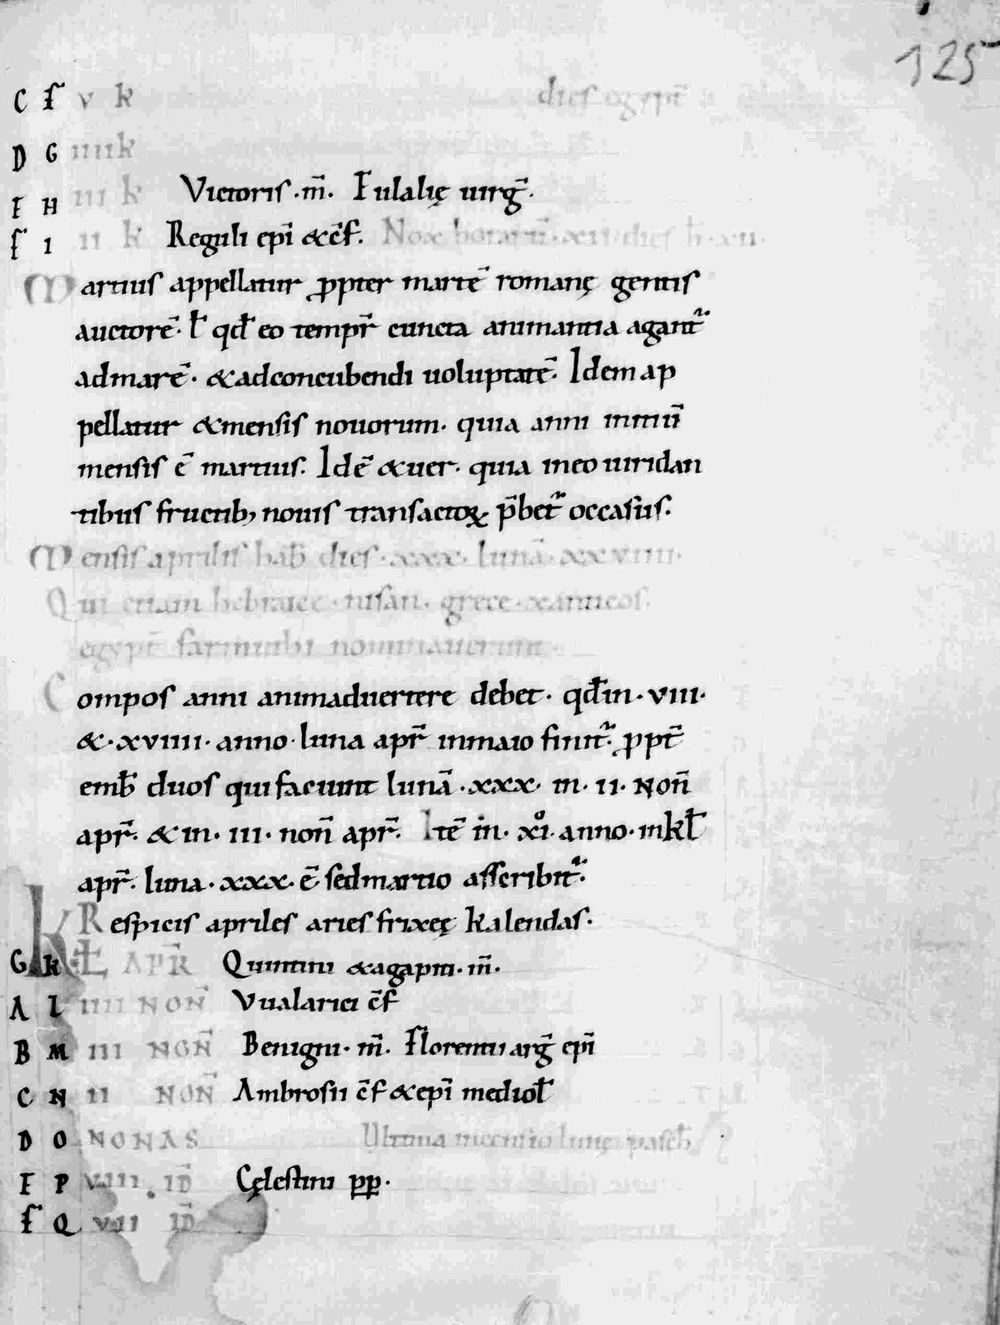 125
C ſ v k dieſ egypt̄
D G iiii k
E H iii k Victoriſ · m̄. Eulalię uirḡ.
F I ii k Reguli ep̄i & c̄f. Nox horarū · xii · dieſ h̄ · xii.
Martiuſ appellatur ꝓpter martē romanę gentiſ
auctorē. ł qđ eo tempr̄ cuncta animantia agant᷑
admarē. & adconcubendi uoluptatē. Idem ap
pellatur & menſiſ nouorum. quia anni initiū
menſiſ ē martiuſ. Idē & uer. quia in eo uiridan
tibuſ fructib; nouiſ tranſactoꝝ p̄bet᷑ occaſuſ.
Menſiſ apriliſ hab̄ dieſ · xxx · lunā · xxviiii.
Qui etiam hebraice · niſan. grece · xanticoſ.
egypt̄ farmuthi nominauerunt.
Compoſ anni animaduertere debet · qđ in · viii ·
& · xviiii · anno · luna apr̄ in maio finit᷑. ꝓpt̄
emb̄ duoſ qui faciunt lunā · xxx · in · ii · Non̄
apr̄. & in · iii · non̄ apr̄. Itē in · xi° · anno · in kł
apr̄. luna · xxx · ē ſed martio aſſcribit᷑.
Reſpiciſ aprileſ arieſ frixeę kalendaſ.
G K KŁ APR̄ Quintini & agapiti · m̄.
A L iiii NON̄ Vualarici c̄f
B M iii NON̄ Benigni · m̄. Florentii arḡ ep̄i
C N ii NON̄ Ambroſii c̄f & ep̄i medioł
D O NONAS Ultima incenſio lunę paſch̄
E P viii ID̄ Cęleſtini pp.
F Q vii ID̄